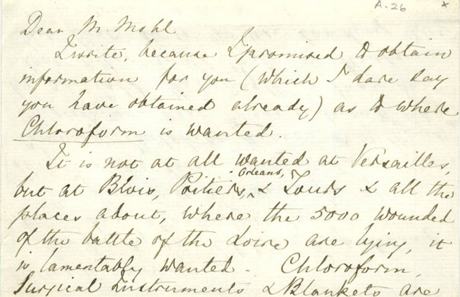 A.26 x
Dear M. Mohl
I write, because I promised to obtain
information for you (which I dare say
you have obtained already) as to where
Chloroform is wanted.
It is not at all wanted at Versailles,
but at Blois, Poitiers, Orleans, & Tours & all the
places about, where the 5000 wounded
of the battle of the Loire are lying, it
is lamentably wanted. Chloroform,
Surgical instruments & Blankets are